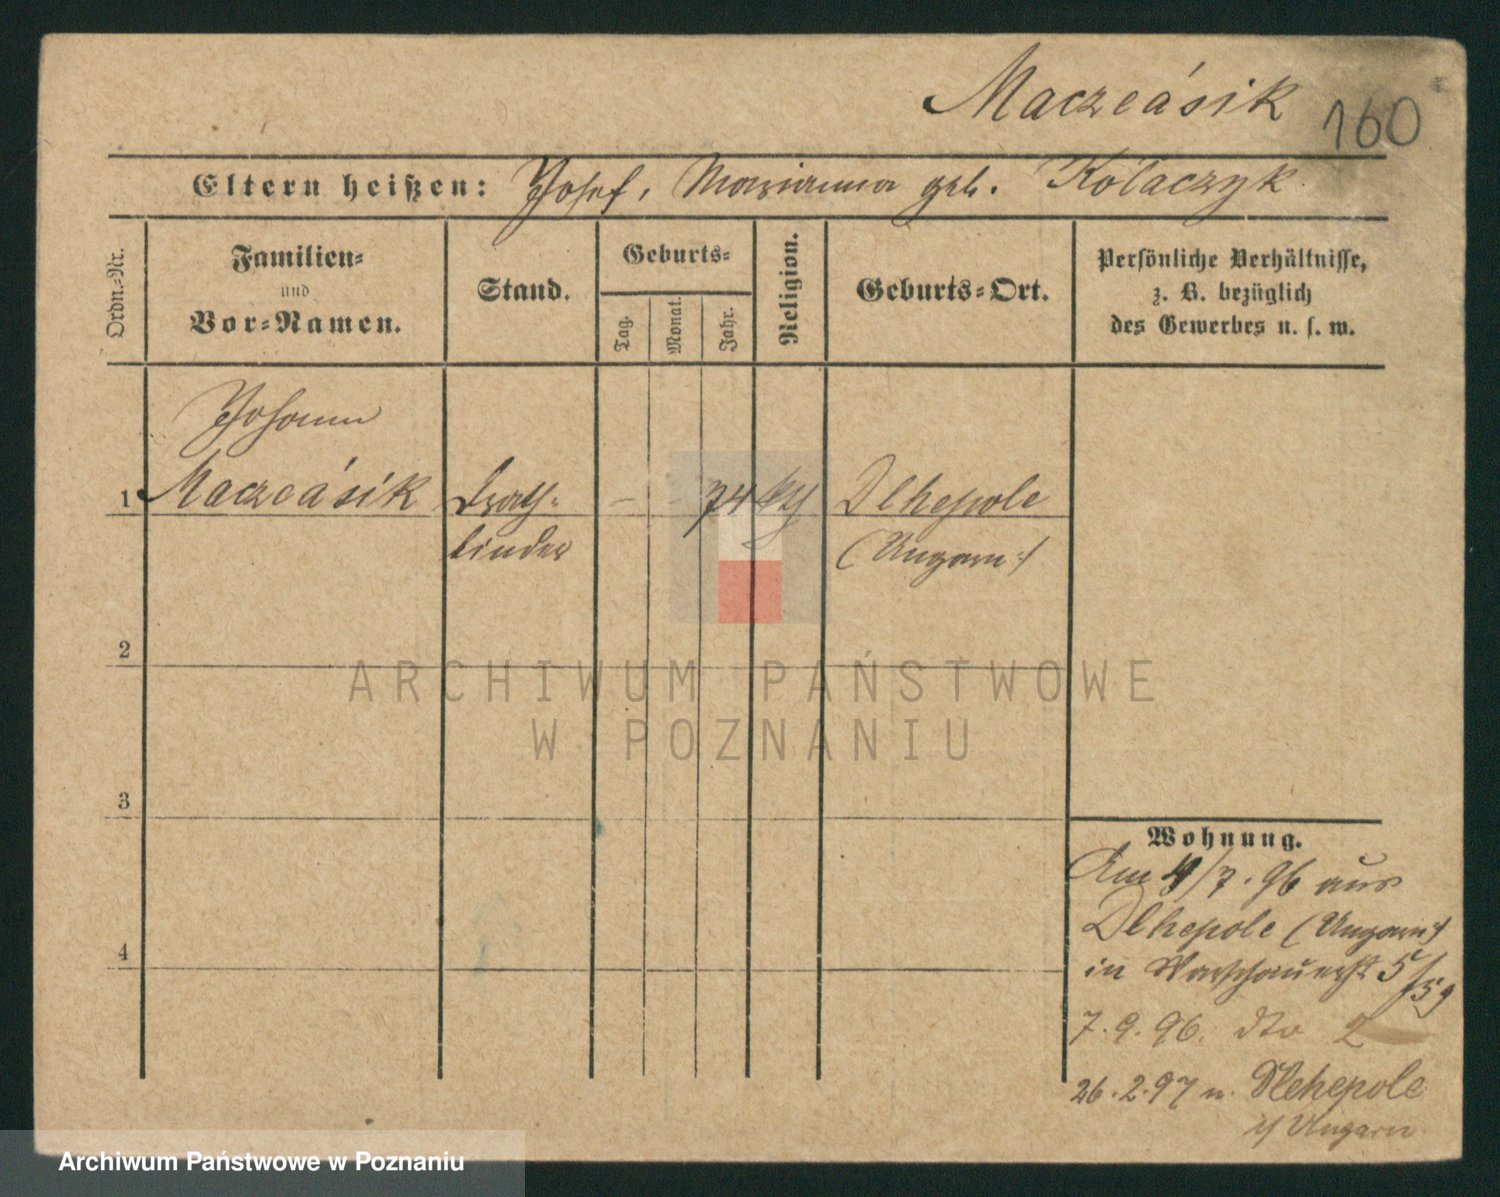 Maczcásik 160
Eltern heißen: Josef, Marianna geb. Kolaczyk
Ordn.-Nr.
Familien-
und
Vor-Namen.
Stand.
Geburts-
Tag.
Monat.
Jahr.
Religion.
Geburts-Ort.
Persönliche Verhältnisse,
z. B. bezüglich
des Gewerbes u. s. w.
Johann
1 Maczcásik Drath- – – 74 Dlhepole
binder (Ungarn)
2
ARCHIWUM PAŃSTWOWE
W POZNANIU
3
Wohnung.
Am 4/7.96 aus
Dlhepole (Ungarn)
4
in Warschauerst 5/59
7.9.96. dto 2
26.2.97 n. Dlhepole
i/ Ungarn
Archiwum Państwowe w Poznaniu